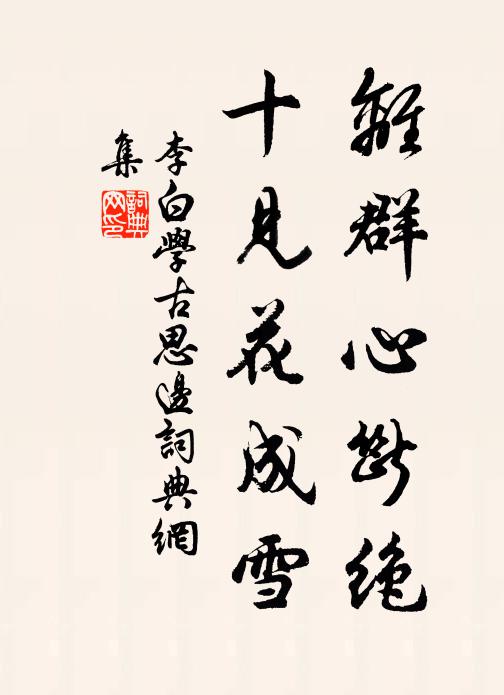 離群心斷絕
十見花成雪
李白學古思邊詞典網
集
詞典网印